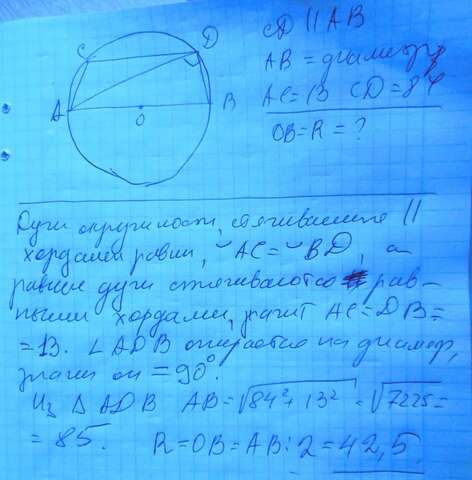 C
D
A
B
O
CD || AB
AB = диаметр
AC=13 CD=84
OB=R=?
Дуги окружности, стягиваемые ||
хордами равны, ◡AC=◡BD, а
равные дуги стягиваются рав-
ными хордами, значит AC=DB=
=13. ∠ADB опирается на диаметр,
значит он =90°.
Из Δ ADB AB=√84²+13² =√7225=
=85. R=OB=AB:2=42,5